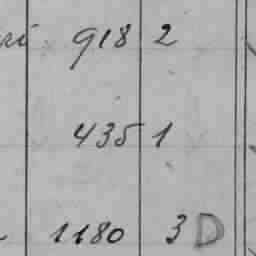 918 2
435 1
1180 3 D